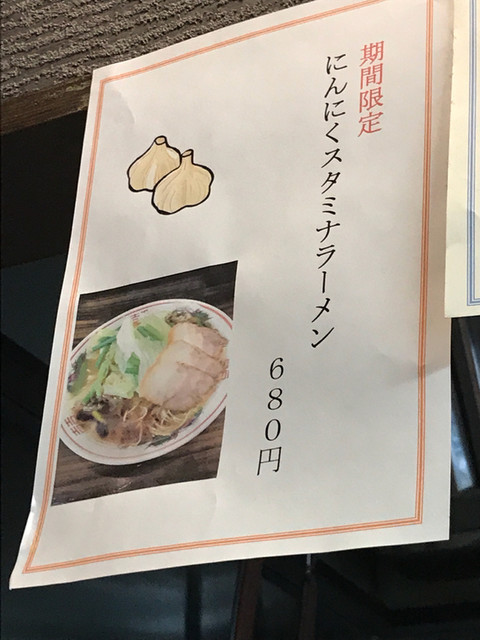 期間限定
にんにくスタミナラーメン
６８０円